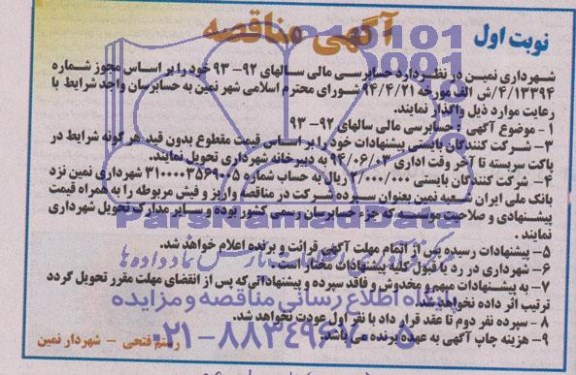 آگهی مناقصه
نوبت اول
شهرداری نمین در نظر دارد حسابرسی مالی سالهای ۹۲- ۹۳ خود را بر اساس مجوز شماره
۴/۱۳۳۹۴/ش الف مورخه ۹۴/۴/۲۱ شورای محترم اسلامی شهر نمین به حسابرسان واجد شرایط با
رعایت موارد ذیل واگذار نمایند.
۱- موضوع آگهی : حسابرسی مالی سالهای ۹۲- ۹۳
۳- شرکت کنندگان بایستی پیشنهادات خود را بر اساس قیمت مقطوع بدون قید هر گونه شرایط در
پاکت سربسته تا آخر وقت اداری ۹۴/۰۶/۰۳ به دبیرخانه شهرداری تحویل نمایند.
۴- شرکت کنندگان بایستی ۲/۰۰۰/۰۰۰ ریال به حساب شماره ۳۱۰۰۰۰۳۵۶۹۰۰۵ شهرداری نمین نزد
بانک ملی ایران شعبه نمین بعنوان سپرده شرکت در مناقصه واریز و فیش مربوطه را به همراه قیمت
پیشنهادی و صلاحیت موسسه که جزء حسابرسان رسمی کشور بوده و سایر مدارک تحویل شهرداری
نمایند .
۵- پیشنهادات رسیده پس از اتمام مهلت آگهی قرائت و برنده اعلام خواهد شد.
۶- شهرداری در رد یا قبول کلیه پیشنهادات مختار است .
۷- به پیشنهادات مبهم و مخدوش و فاقد سپرده و پیشنهاداتی که پس از انقضای مهلت مقرر تحویل گردد
ترتیب اثر داده نخواهد شد.
۸- سپرده نفر دوم تا عقد قرار داد با نفر اول عودت نخواهد شد.
۹- هزینه چاپ آگهی به عهده برنده می باشد.
رستم فتحی - شهردار نمین
ParsNamadData
پایگاه اطلاع رسانی مناقصه و مزایده
۰۲۱-۸۸۳۴۹۶۷۰-۵